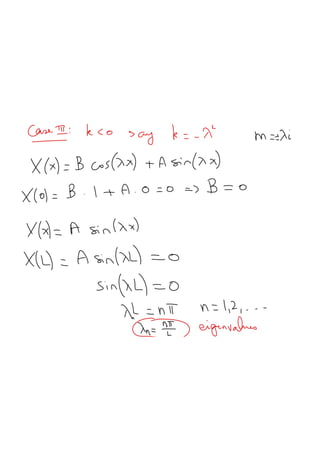 Case III: k<0 say k = -λ² m=±λi
X(x) = B cos(λx) + A sin(λx)
X(0) = B . 1 + A . 0 = 0 => B = 0
X(x) = A sin(λx)
X(L) = A sin(λL) = 0
sin(λL) = 0
λL = nπ n = 1,2, ...
λn = nπ/L eigenvalues